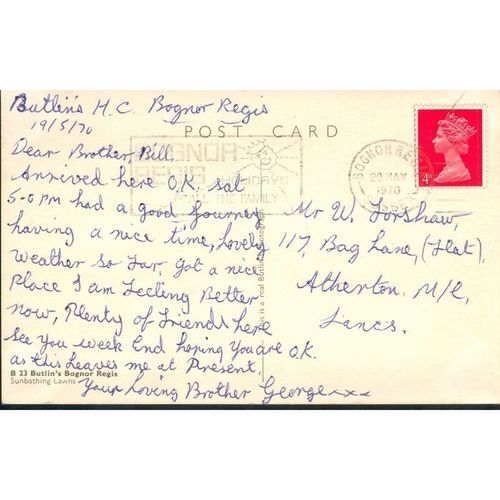 Butlin's H.C. Bognor Regis
19/5/70
POST CARD
Dear Brother, Bill.
Arrived here O.K. sat
5-0 pm had a good Journey
having a nice time, Lovely
weather so far, got a nice
Place I am Feeling Better
now, Plenty of Friends here
See you week End hoping you are O.K.
as this Leaves me at Present.
Your Loving Brother George xxx
BOGNOR
REGIS
HOLIDAYS
FOR ALL THE FAMILY
BOGNOR REGIS
20 MAY
1970
4D
Mr W. Forshaw,
117, Bag Lane, (Flat),
Atherton. M/c,
Lancs.
This is a real Butlin Photograph
B 23 Butlin's Bognor Regis
Sunbathing Lawns